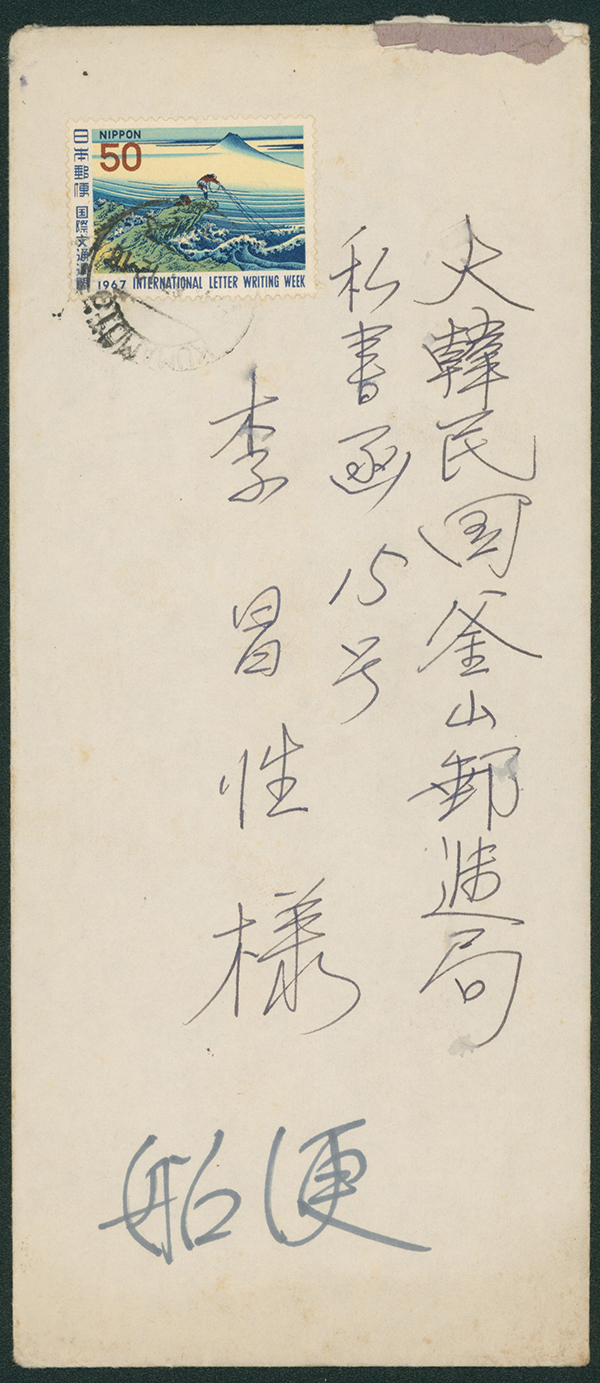 NIPPON
50
日本郵便 国際文通週間
1967 INTERNATIONAL LETTER WRITING WEEK
大韓民国釜山郵逓局
私書函15号
李昌性様
船便